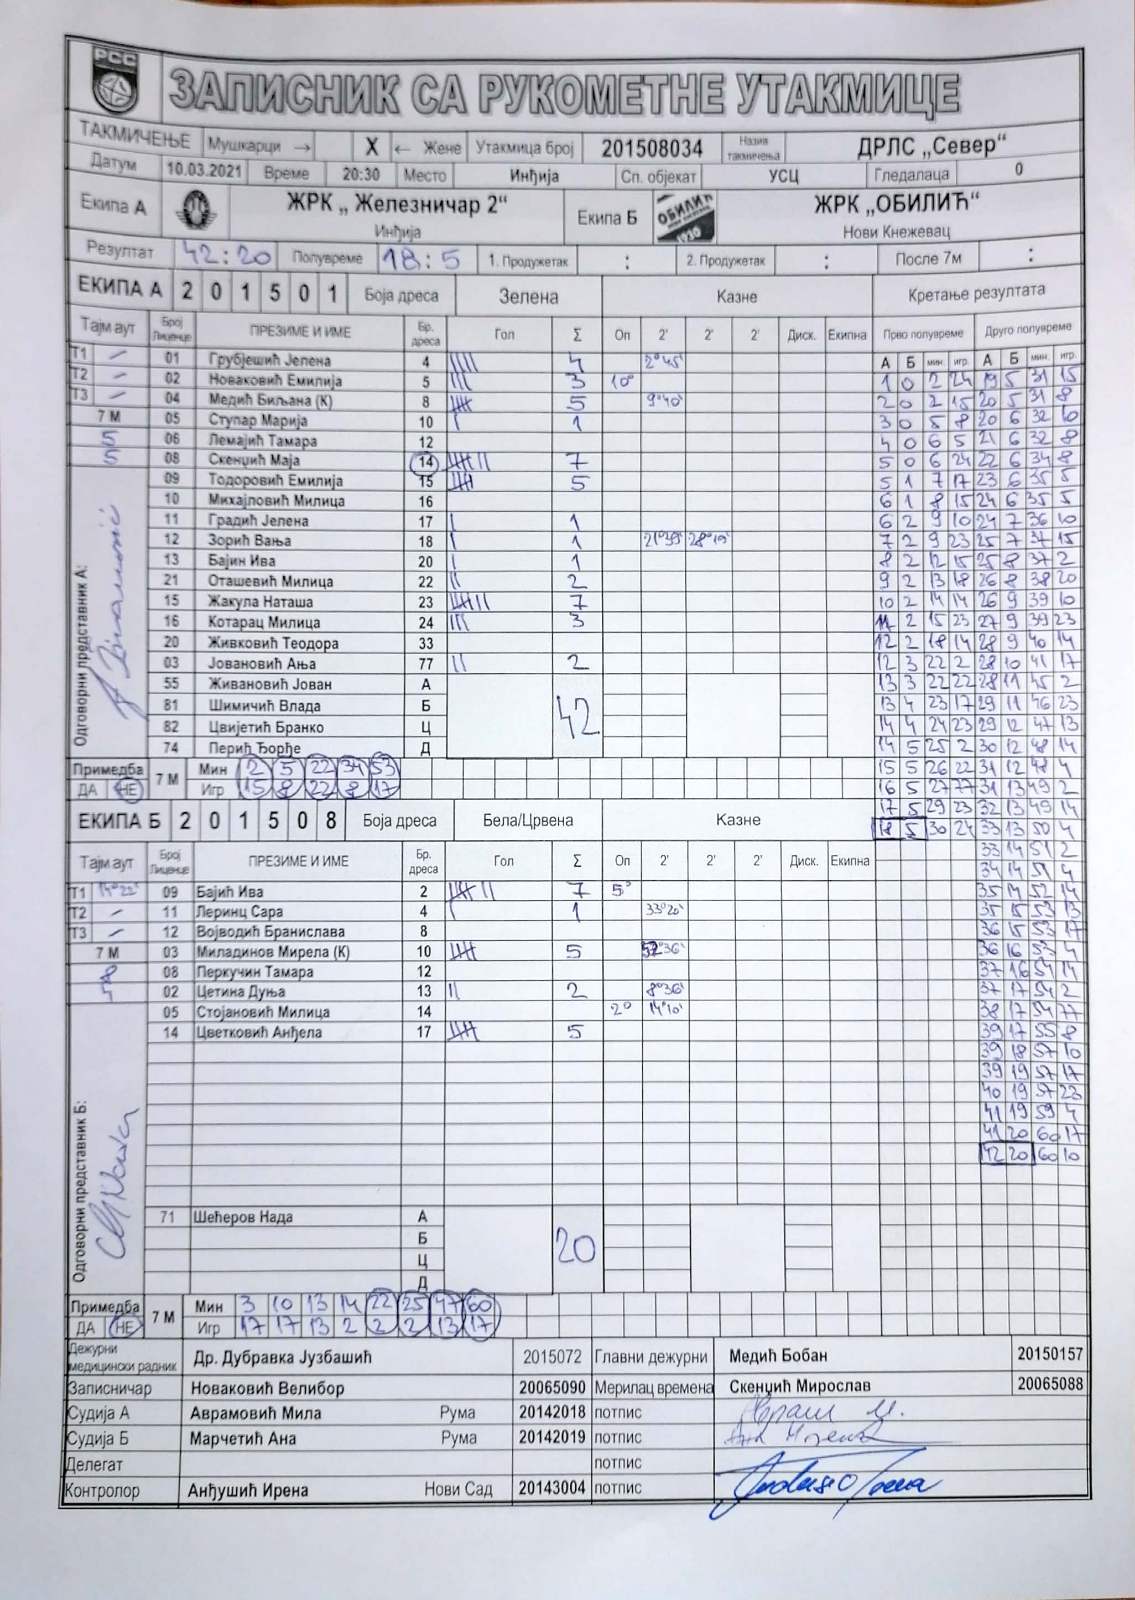 РСС
ЗАПИСНИК СА РУКОМЕТНЕ УТАКМИЦЕ
ТАКМИЧЕЊЕ Мушкарци → X ← Жене Утакмица број 201508034 Назив такмичења ДРЛС „Север“
Датум 10.03.2021 Време 20:30 Место Инђија Сп. објекат УСЦ Гледалаца 0
Екипа А ЖРК „ Железничар 2“ Инђија Екипа Б ОБИЛИЋ 1930 ЖРК „ОБИЛИЋ“ Нови Кнежевац
Резултат 42:20 Полувреме 18:5 1. Продужетак : 2. Продужетак : После 7м :
ЕКИПА А 2 0 1 5 0 1 Боја дреса Зелена Казне Кретање резултата
Тајм аут Број Лиценце ПРЕЗИМЕ И ИМЕ Бр. дреса Гол Σ Оп 2' 2' 2' Диск. Екипна Прво полувреме Друго полувреме
А Б мин. игр. А Б мин. игр.
Т1 – 01 Грубјешић Јелена 4 4 2°45'
Т2 – 02 Новаковић Емилија 5 3 10° 1 0 2 24 19 5 31 15
Т3 – 04 Медић Биљана (К) 8 5 9°40' 2 0 2 15 20 5 31 8
7 М 05 Ступар Марија 10 1 3 0 5 8 20 6 32 10
5 06 Лемајић Тамара 12 4 0 6 5 21 6 32 8
5 08 Скенџић Маја 14 7 5 0 6 24 22 6 34 8
09 Тодоровић Емилија 15 5 5 1 7 17 23 6 35 5
10 Михајловић Милица 16 6 1 8 15 24 6 35 5
11 Градић Јелена 17 1 6 2 9 10 24 7 36 10
12 Зорић Вања 18 1 21°39' 28°19' 7 2 9 23 25 7 37 15
13 Бајин Ива 20 1 8 2 12 15 25 8 37 2
21 Оташевић Милица 22 2 9 2 13 18 26 8 38 20
15 Жакула Наташа 23 7 10 2 14 14 26 9 39 10
16 Котарац Милица 24 3 11 2 15 23 27 9 39 23
20 Живковић Теодора 33 12 2 18 14 28 9 40 14
03 Јовановић Ања 77 2 12 3 22 2 28 10 41 17
55 Живановић Јован А 13 3 22 22 28 11 45 2
81 Шимичић Влада Б 42 13 4 23 17 29 11 46 23
82 Цвијетић Бранко Ц 14 4 24 23 29 12 47 13
74 Перић Ђорђе Д 14 5 25 2 30 12 48 14
Одговорни представник А:
Примедба 7 М Мин 2 5 22 34 53 15 5 26 22 31 12 48 4
ДА НЕ Игр 15 8 22 8 17 16 5 27 77 31 13 49 2
17 5 29 23 32 13 49 14
ЕКИПА Б 2 0 1 5 0 8 Боја дреса Бела/Црвена Казне 18 5 30 24 33 13 50 4
33 14 51 2
Тајм аут Број Лиценце ПРЕЗИМЕ И ИМЕ Бр. дреса Гол Σ Оп 2' 2' 2' Диск. Екипна 34 14 51 4
Т1 14°22' 09 Бајић Ива 2 7 5° 35 14 52 14
Т2 – 11 Леринц Сара 4 1 33°20' 35 15 53 13
Т3 – 12 Војводић Бранислава 8 36 15 53 17
7 М 03 Миладинов Мирела (К) 10 5 36 16 53 4
8 08 Перкучин Тамара 12 37 16 54 14
02 Цетина Дуња 13 2 8°36' 37 17 54 2
05 Стојановић Милица 14 2° 14°10' 38 17 54 77
14 Цветковић Анђела 17 5 39 17 55 8
39 18 57 10
39 19 57 17
40 19 57 23
41 19 59 4
41 20 60 17
42 20 60 10
Одговорни представник Б:
71 Шећеров Нада А
Б 20
Ц
Д
Примедба 7 М Мин 3 10 13 14 22 25 47 60
ДА НЕ Игр 17 17 13 2 2 2 13 17
Дежурни медицински радник Др. Дубравка Јузбашић 2015072 Главни дежурни Медић Бобан 20150157
Записничар Новаковић Велибор 20065090 Мерилац времена Скенџић Мирослав 20065088
Судија А Аврамовић Мила Рума 20142018 потпис
Судија Б Марчетић Ана Рума 20142019 потпис
Делегат потпис
Контролор Анђушић Ирена Нови Сад 20143004 потпис